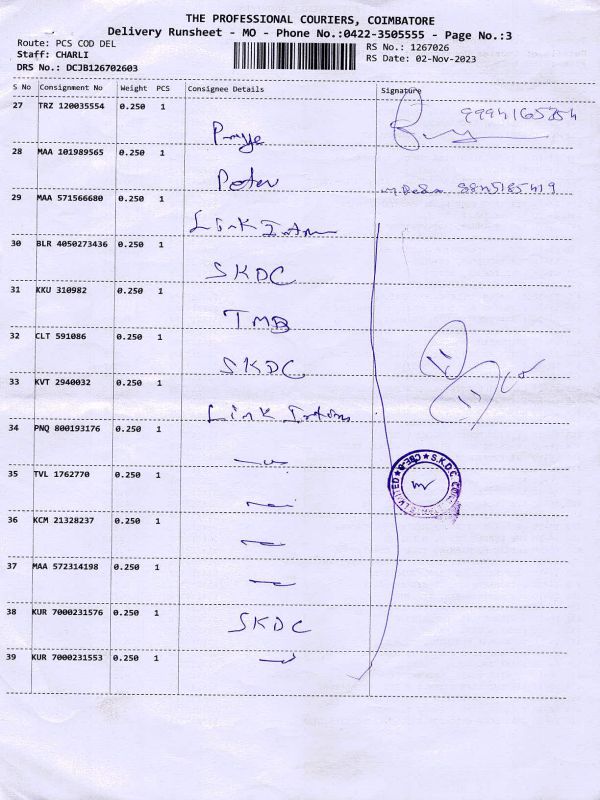 THE PROFESSIONAL COURIERS, COIMBATORE
Delivery Runsheet - MO - Phone No.:0422-3505555 - Page No.:3
Route: PCS COD DEL
RS No.: 1267026
Staff: CHARLI
RS Date: 02-Nov-2023
DRS No.: DCJB126702603
S No Consignment No Weight PCS Consignee Details Signature
27 TRZ 120035554 0.250 1
28 MAA 101989565 0.250 1 Peter
29 MAA 571566680 0.250 1 Link
30 BLR 4050273436 0.250 1 SKDC
31 KKU 310982 0.250 1 TMB
32 CLT 591086 0.250 1 SKDC
33 KVT 2940032 0.250 1 Link
34 PNQ 800193176 0.250 1
35 TVL 1762770 0.250 1
36 KCM 21328237 0.250 1
37 MAA 572314198 0.250 1
38 KUR 7000231576 0.250 1 SKDC
39 KUR 7000231553 0.250 1
S.K.D.C CBE-6 LIMITED